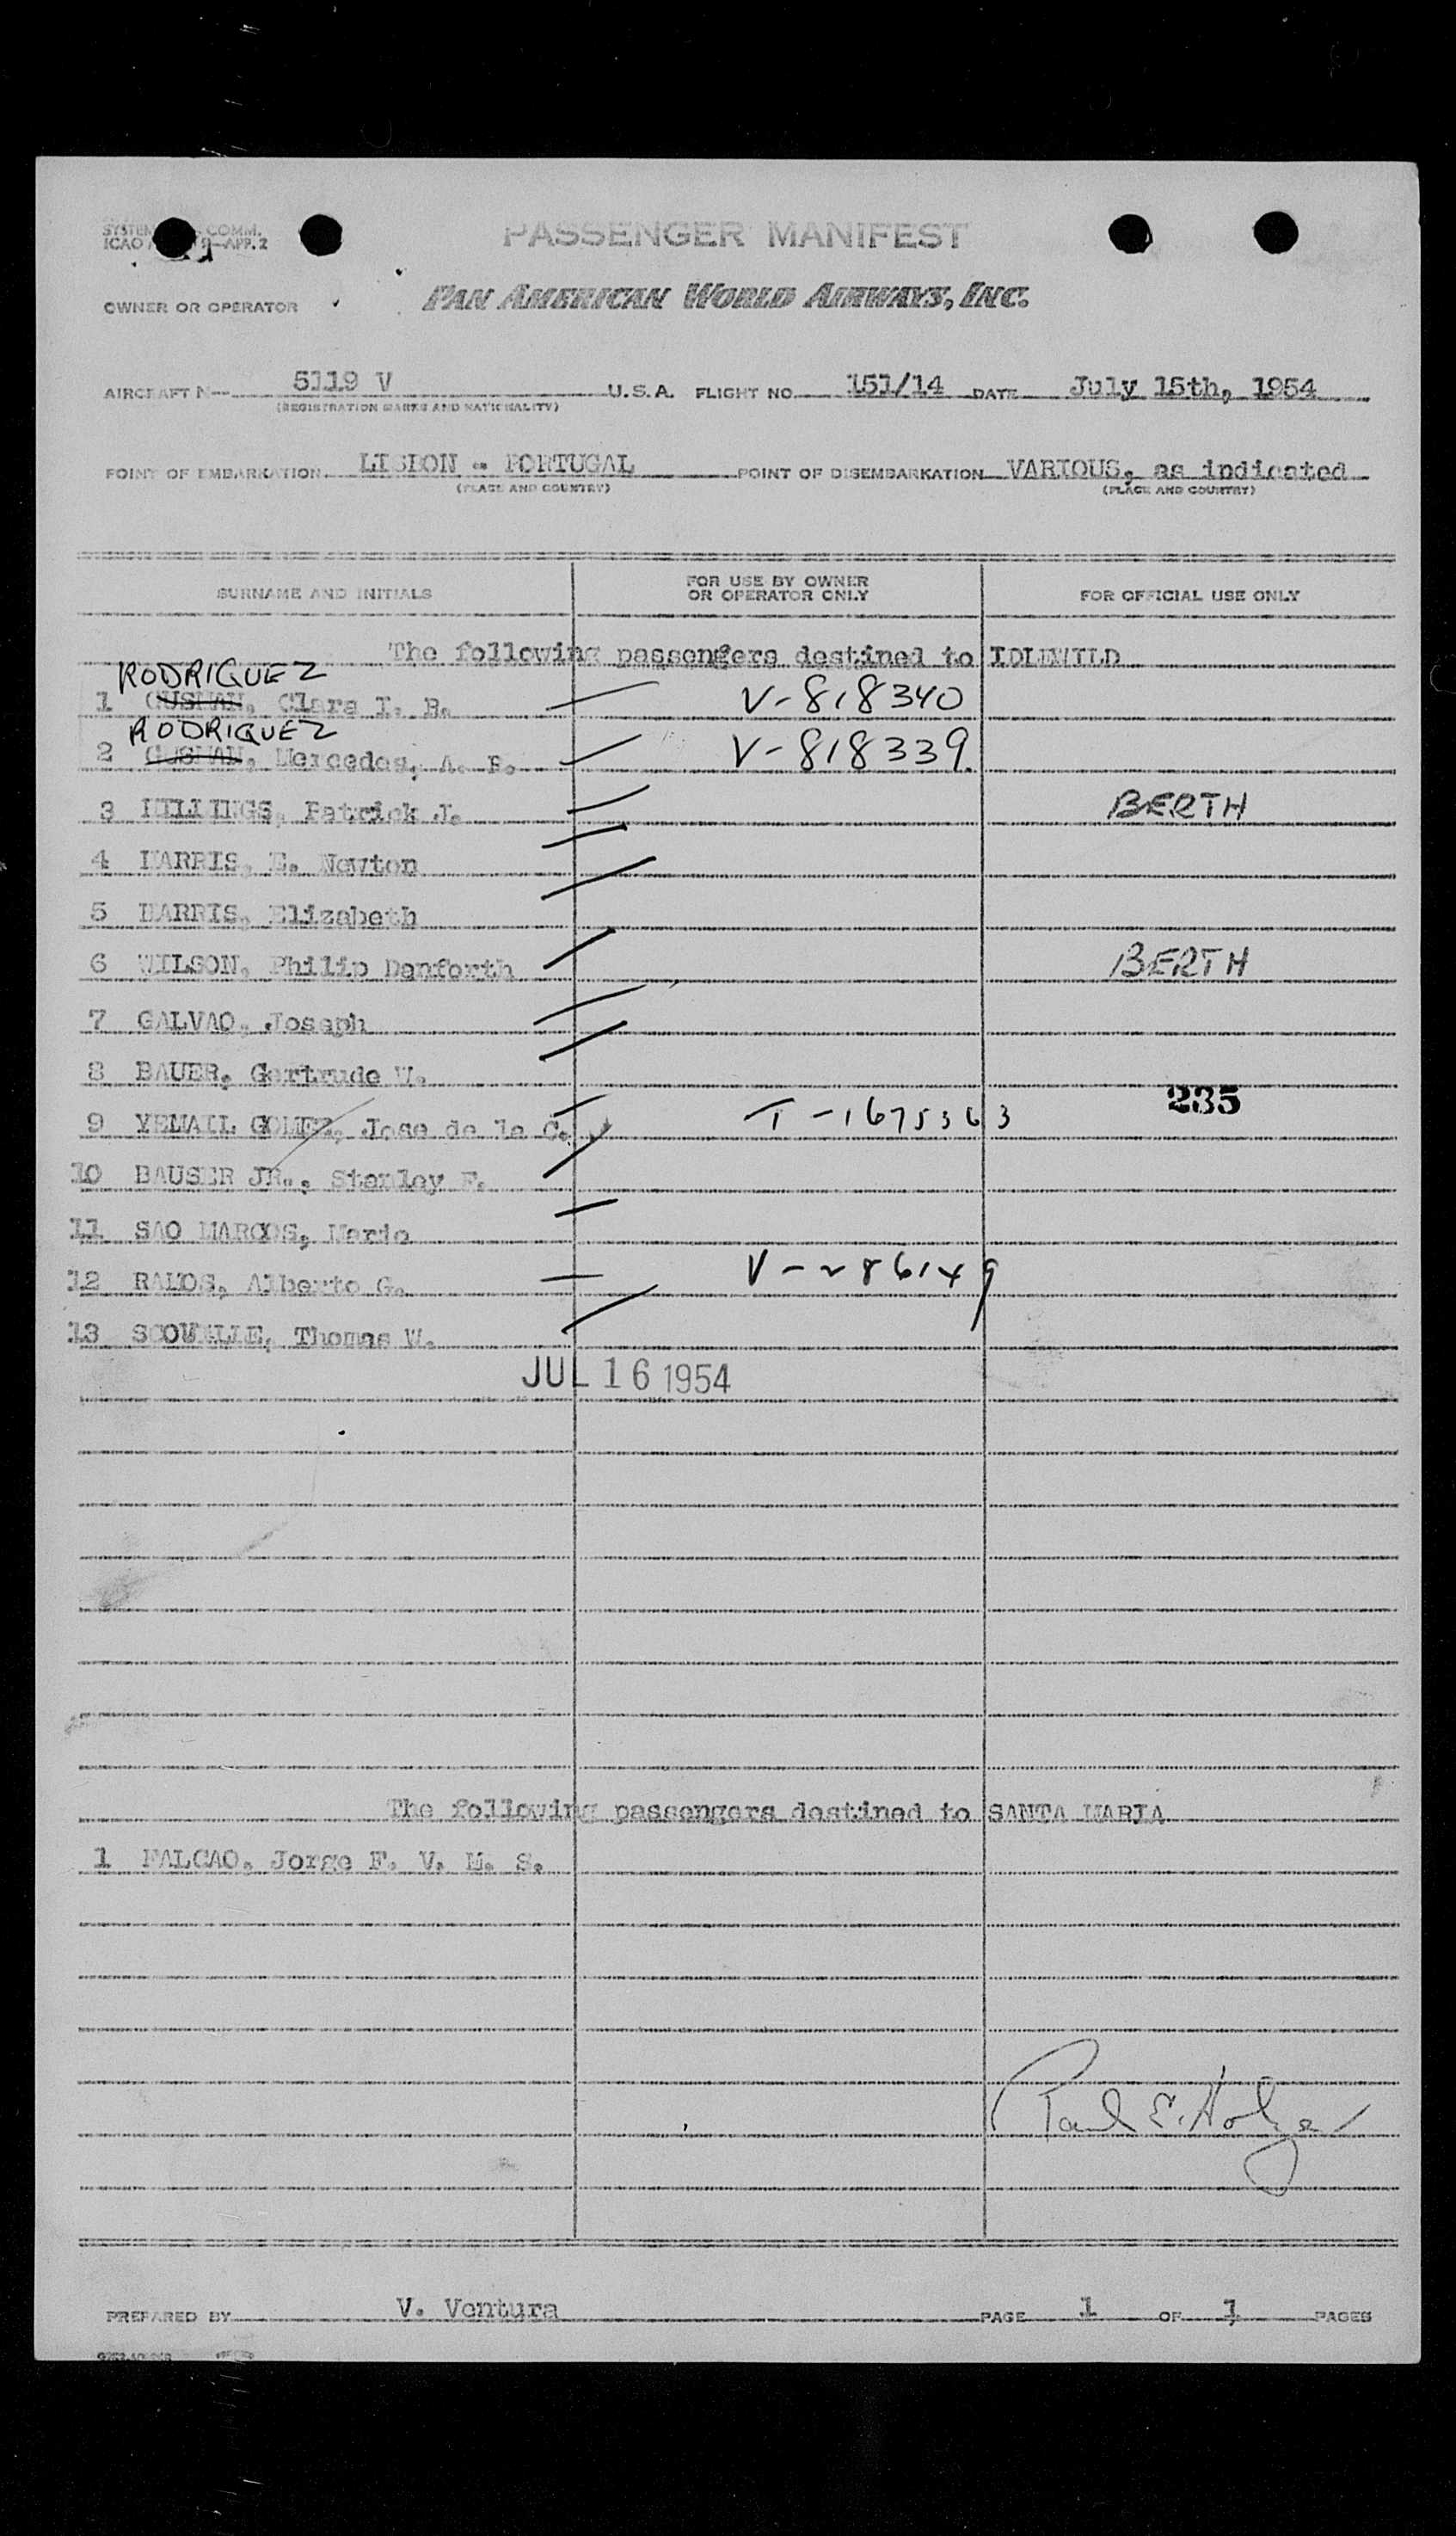 PASSENGER MANIFEST
ICAO
APP. 2
OWNER OR OPERATOR
PAN AMERICAN WORLD AIRWAYS, INC.
AIRCRAFT N— 5119 V U.S.A. FLIGHT NO. 151/14 DATE July 15th, 1954
(REGISTRATION MARKS AND NATIONALITY)
POINT OF EMBARKATION LISBON - PORTUGAL POINT OF DISEMBARKATION VARIOUS, as indicated
(PLACE AND COUNTRY) (PLACE AND COUNTRY)
SURNAME AND INITIALS FOR USE BY OWNER OR OPERATOR ONLY FOR OFFICIAL USE ONLY
The following passengers destined to IDLEWILD
RODRIGUEZ
1 GUSMAN, Clara I. R. V-818340
RODRIGUEZ
2 GUSMAN, Mercedes, A. R. V-818339
3 HILLINGS, Patrick J. BERTH
4 HARRIS, E. Newton
5 HARRIS, Elizabeth
6 WILSON, Philip Danforth BERTH
7 GALVAO, Joseph
8 BAUER, Gertrude W.
235
9 YEMAIL GOMEZ, Jose de la C. T-1675363
10 BAUSER JR., Stanley F.
11 SAO MARCOS, Mario
12 RAMOS, Alberto G. V-286149
13 SCOVILLE, Thomas W.
JUL 16 1954
The following passengers destined to SANTA MARIA
1 FALCAO, Jorge F. V. M. S.
Paul E. Holzer
PREPARED BY V. Ventura PAGE 1 OF 1 PAGES